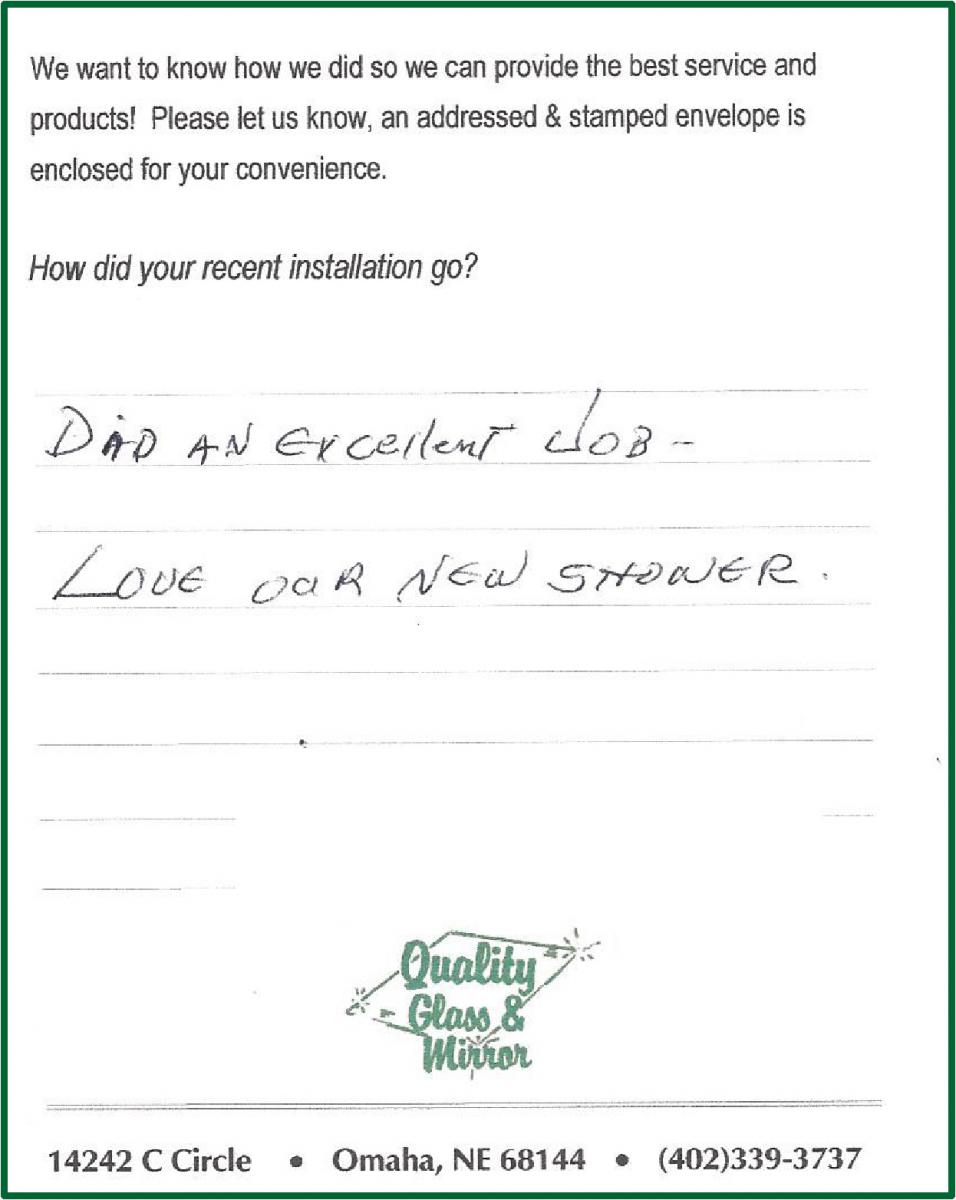 We want to know how we did so we can provide the best service and
products! Please let us know, an addressed & stamped envelope is
enclosed for your convenience.
How did your recent installation go?
DiD AN Excellent JOB -
LOVE OUR NEW SHOWER.
Quality
Glass &
Mirror
14242 C Circle • Omaha, NE 68144 • (402)339-3737